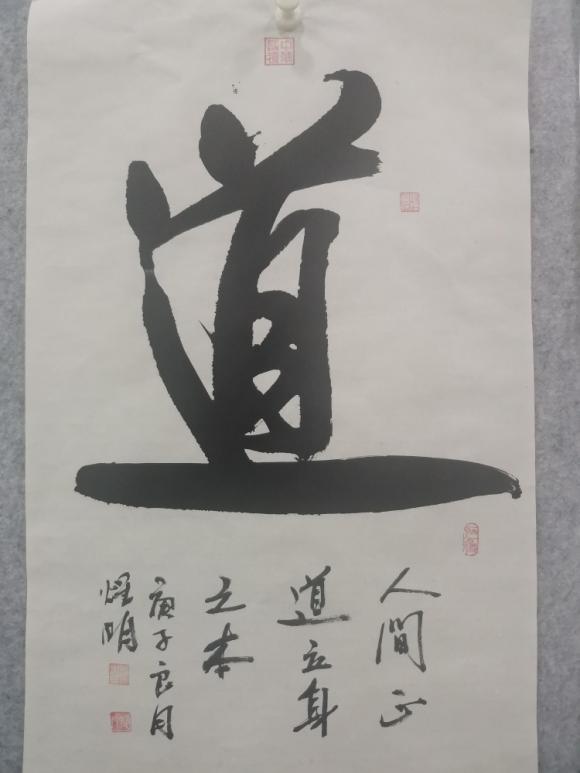 道
人间正
道立身
之本
庚子良月
耀明